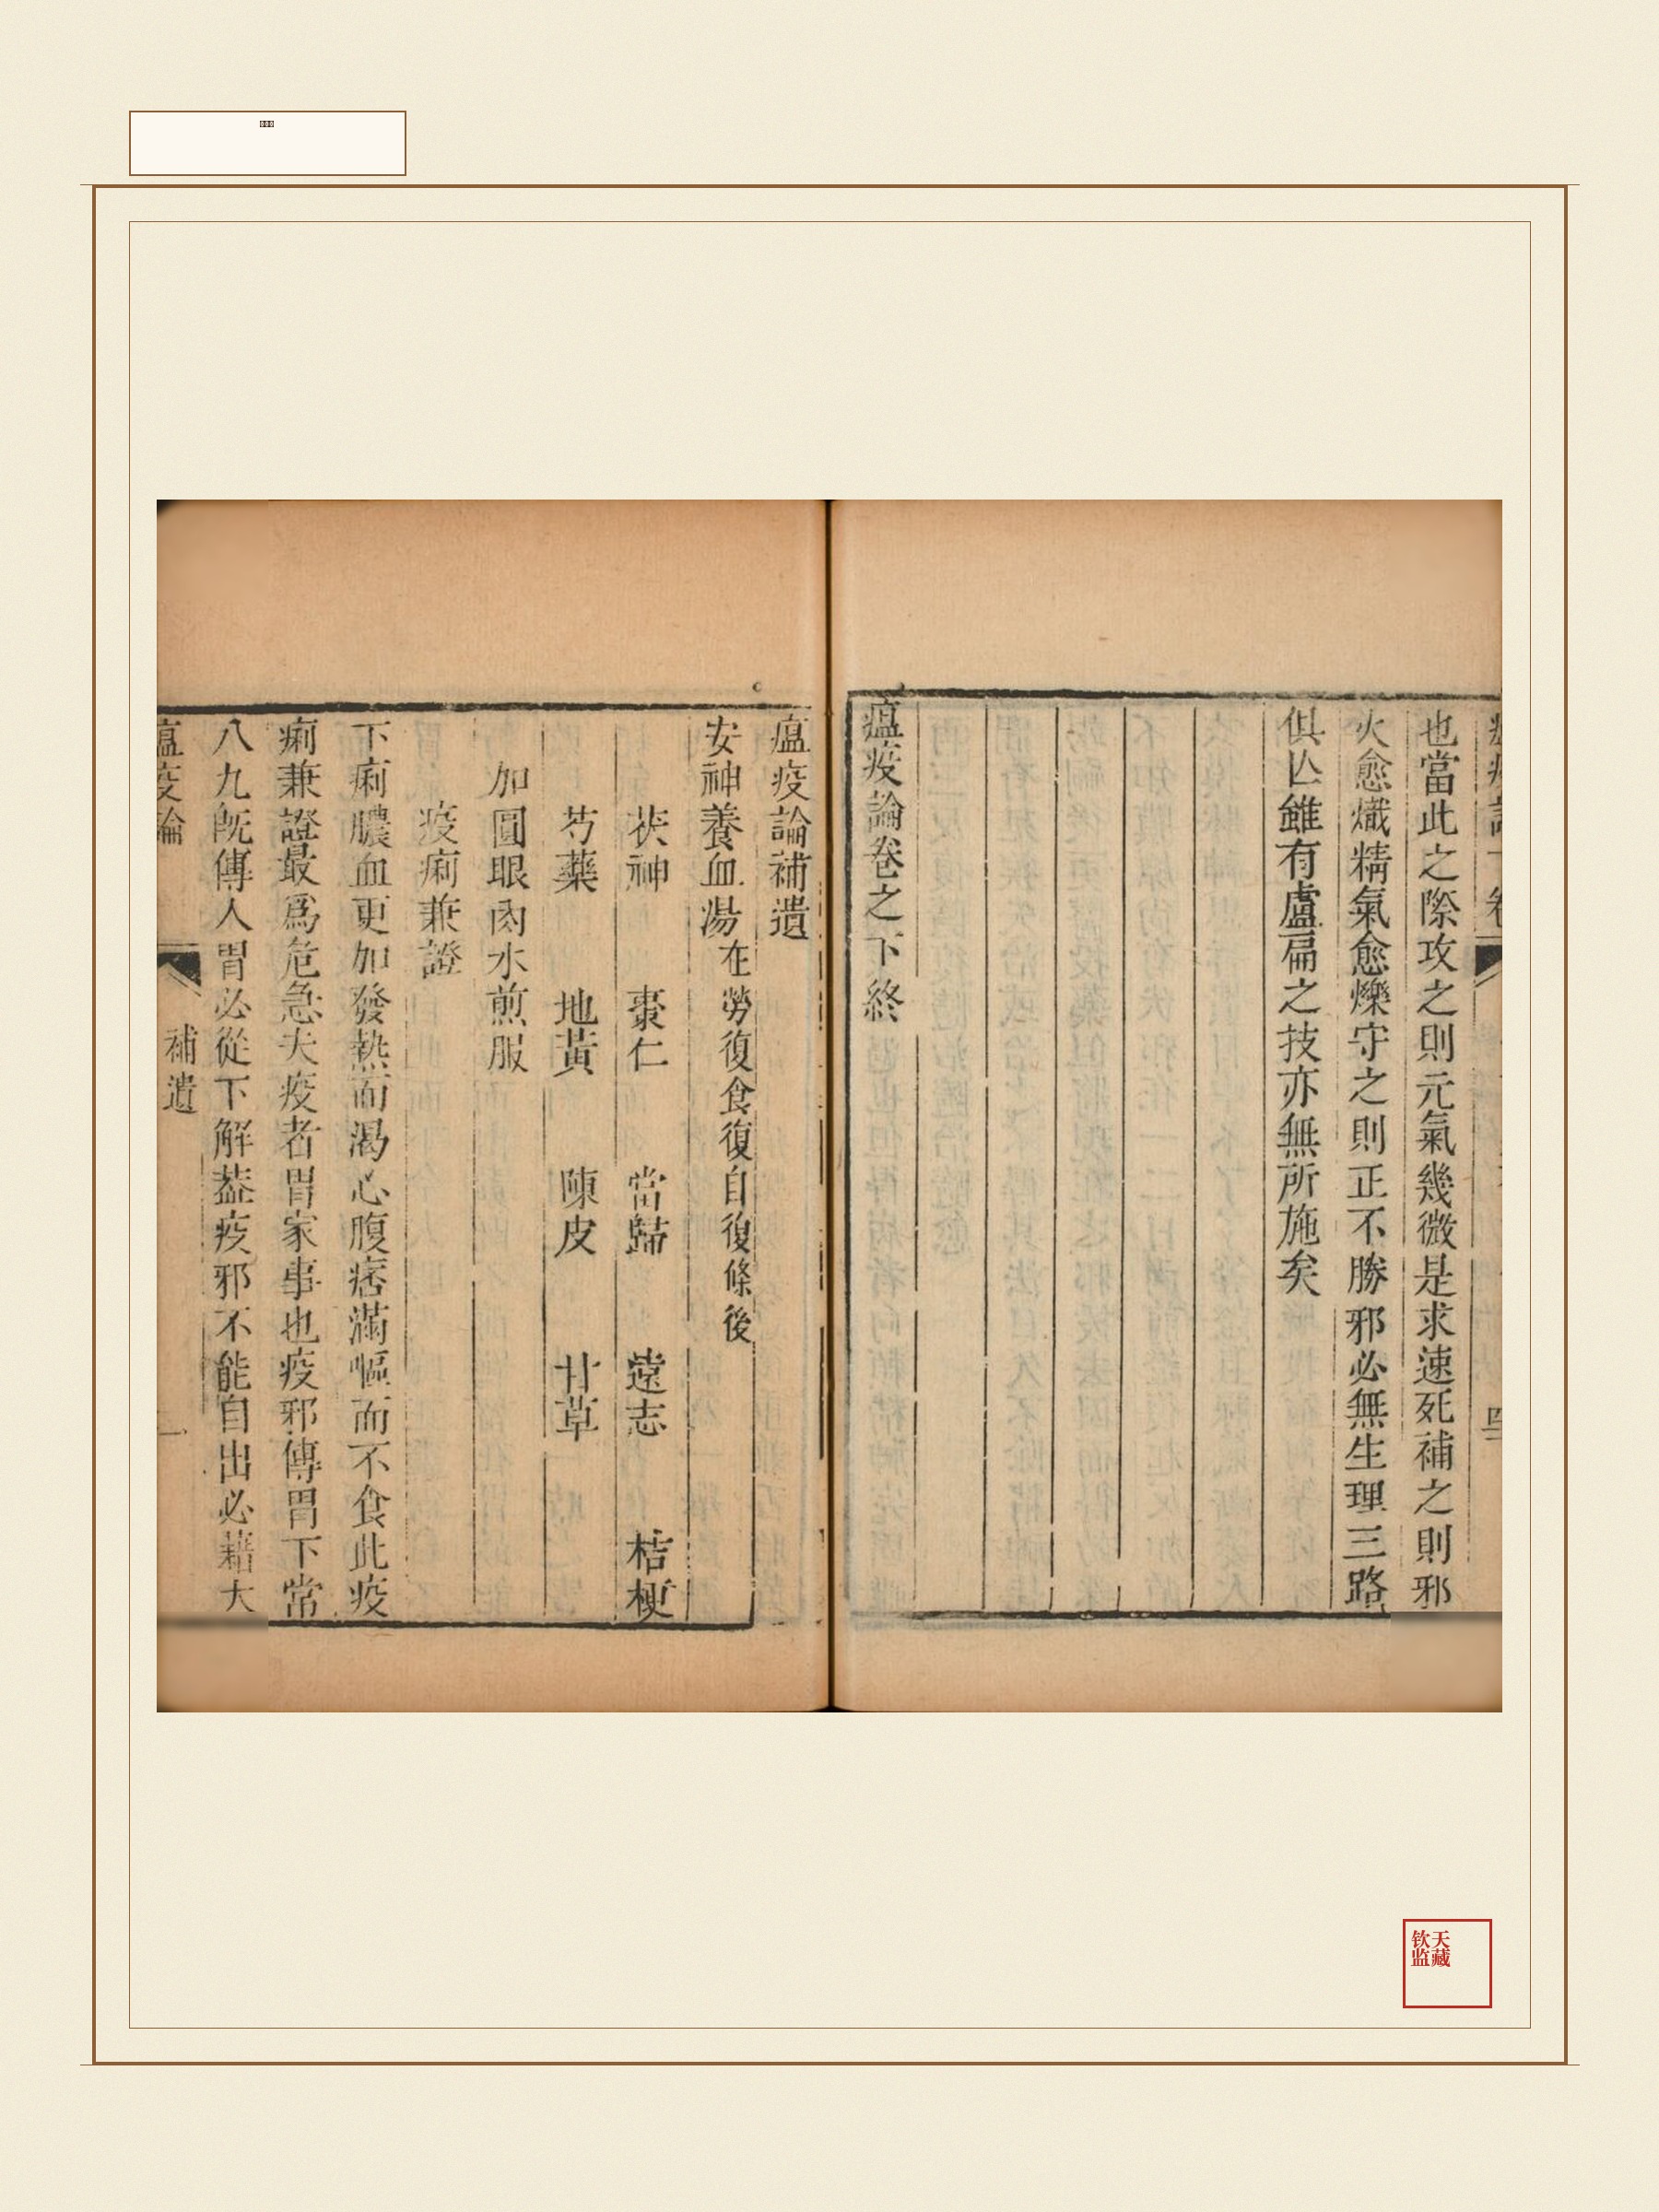 也當此之際攻之則元氣幾微是求速死補之則邪
火愈熾精氣愈爍守之則正不勝邪邪必無生理三路
俱亾雖有盧扁之技亦無所施矣
瘟疫論卷之下終
瘟疫論補遺
安神養血湯在勞復食復自復條後
茯神 棗仁 當歸 遠志 桔梗
芍藥 地黃 陳皮 甘草
加圓眼肉水煎服
疫痢兼證
下痢膿血更加發熱而渴心腹痞滿嘔而不食此疫
痢兼證最爲危急夫疫者胃家事也疫邪傳胃下常
八九旣傳人胃必從下解葢疫邪不能自出必藉大
瘟疫論 補遺 一
钦天
监藏